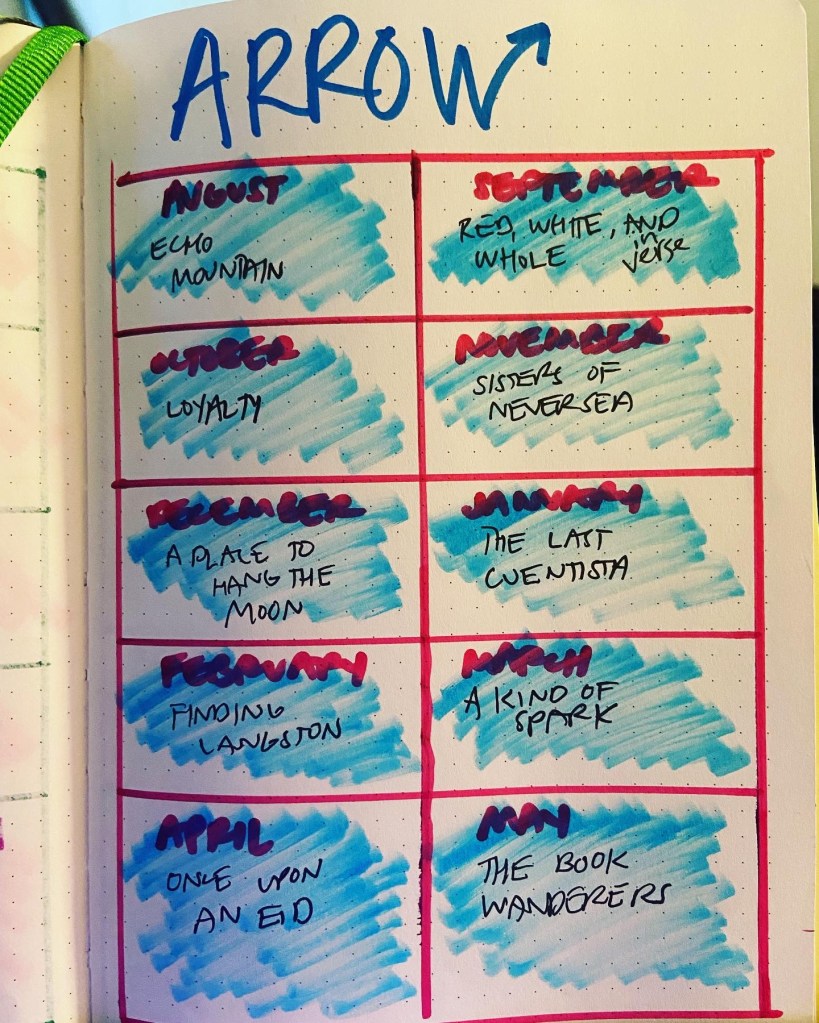 ARROW
AUGUST
ECHO
MOUNTAIN
SEPTEMBER
RED, WHITE, AND
WHOLE
in
jerse
OCTOBER
LOYALTY
NOVEMBER
SISTERS OF
NEVERSEA
DECEMBER
A PLACE TO
HANG THE
MOON
JANUARY
THE LAST
CUENTISTA
FEBRUARY
FINDING
LANGSTON
MARCH
A KIND OF
SPARK
APRIL
ONCE UPON
AN EID
MAY
THE BOOK
WANDERERS